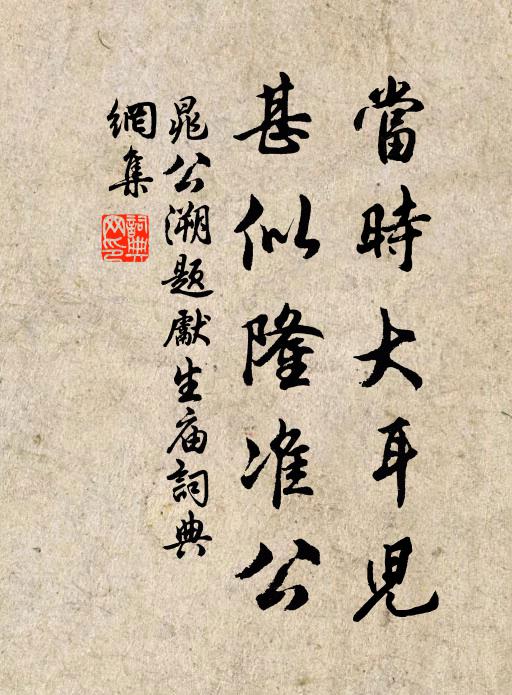 當時大耳兒
甚似隆准公
晁公溯题獻生庙詞典
網集
詞典
网印